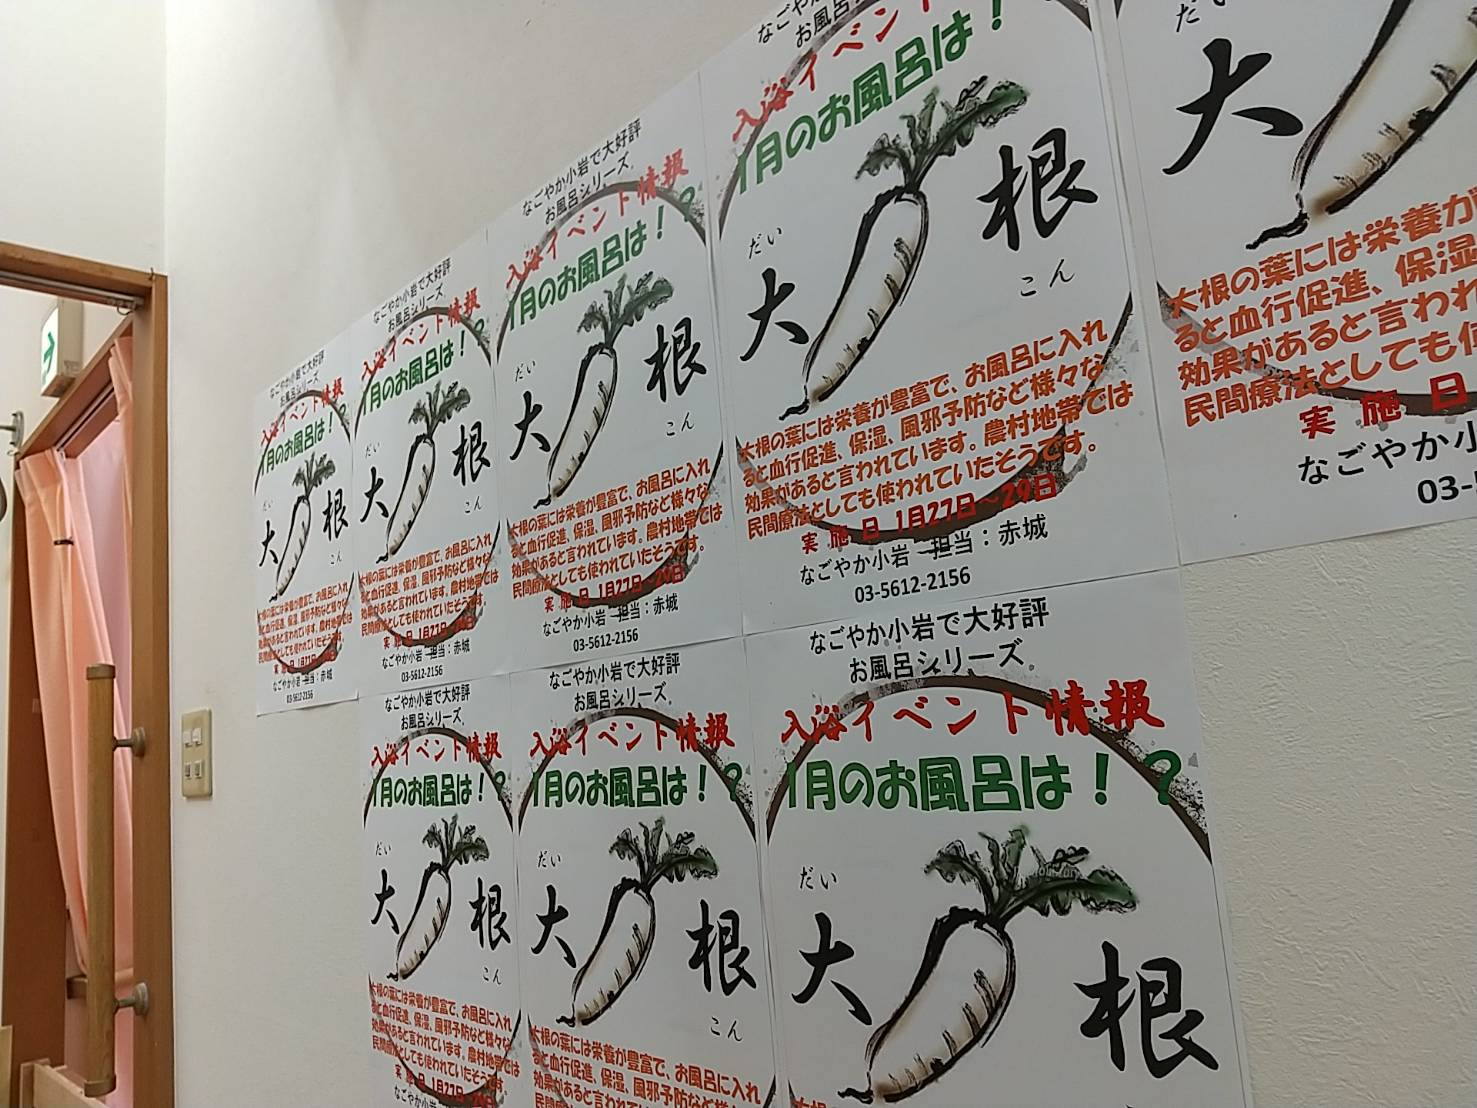 なごやか小岩で大好評
お風呂シリーズ
入浴イベント情報
1月のお風呂は！？
だい
大
根
こん
大根の葉には栄養が豊富で、お風呂に入れ
ると血行促進、保湿、風邪予防など様々な
効果があると言われています。農村地帯では
民間療法としても使われていたそうです。
実施日 1月27日～29日
なごやか小岩 担当：赤城
03-5612-2156
なごやか小岩で大好評
お風呂シリーズ
入浴イベント情報
1月のお風呂は！？
だい
大
根
こん
大根の葉には栄養が豊富で、お風呂に入れ
ると血行促進、保湿、風邪予防など様々な
効果があると言われています。農村地帯では
民間療法としても使われていたそうです。
実施日 1月27日～29日
なごやか小岩 担当：赤城
03-5612-2156
なごやか小岩で大好評
お風呂シリーズ
入浴イベント情報
1月のお風呂は！？
だい
大
根
こん
大根の葉には栄養が豊富で、お風呂に入れ
ると血行促進、保湿、風邪予防など様々な
効果があると言われています。農村地帯では
民間療法としても使われていたそうです。
実施日 1月27日～29日
なごやか小岩 担当：赤城
03-5612-2156
なごや
お風呂
入浴イベント
1月のお風呂は！
だい
大
根
こん
大根の葉には栄養が豊富で、お風呂に入れ
ると血行促進、保湿、風邪予防など様々な
効果があると言われています。農村地帯では
民間療法としても使われていたそうです。
実施日 1月27日～29日
なごやか小岩 担当：赤城
03-5612-2156
だい
大
大根の葉には栄養が
ると血行促進、保湿
効果があると言われ
民間療法としても使
実施日
なごやか小
03-
なごやか小岩で大好評
お風呂シリーズ
入浴イベント情報
1月のお風呂は！？
だい
大
根
こん
大根の葉には栄養が豊富で、お風呂に入れ
ると血行促進、保湿、風邪予防など様々な
効果があると言われています。農村地帯では
民間療法としても使われていたそうです。
実施日 1月27日～29日
なごやか小岩
なごやか小岩で大好評
お風呂シリーズ
入浴イベント情報
1月のお風呂は！？
だい
大
根
こん
大根の葉には栄養が豊富で、お風呂に入れ
ると血行促進、保湿、風邪予防など様々な
効果があると言われています。
なごやか小岩で大好評
お風呂シリーズ
入浴イベント情報
1月のお風呂は！？
だい
大
根